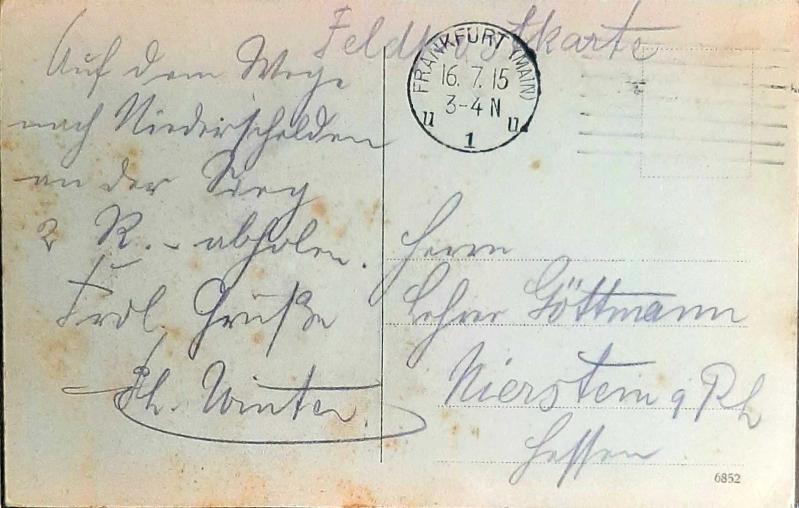 Feldpostkarte
FRANKFURT (MAIN)
16. 7. 15
3-4 N
u 1 u
Auf dem Wege
nach Niederschelden
an der Sieg
2 R. - abholen.
Frdl. Grüße
Ph. Winter.
Herrn
Lehrer Göttmann
Nierstein a Rh
Hessen
6852